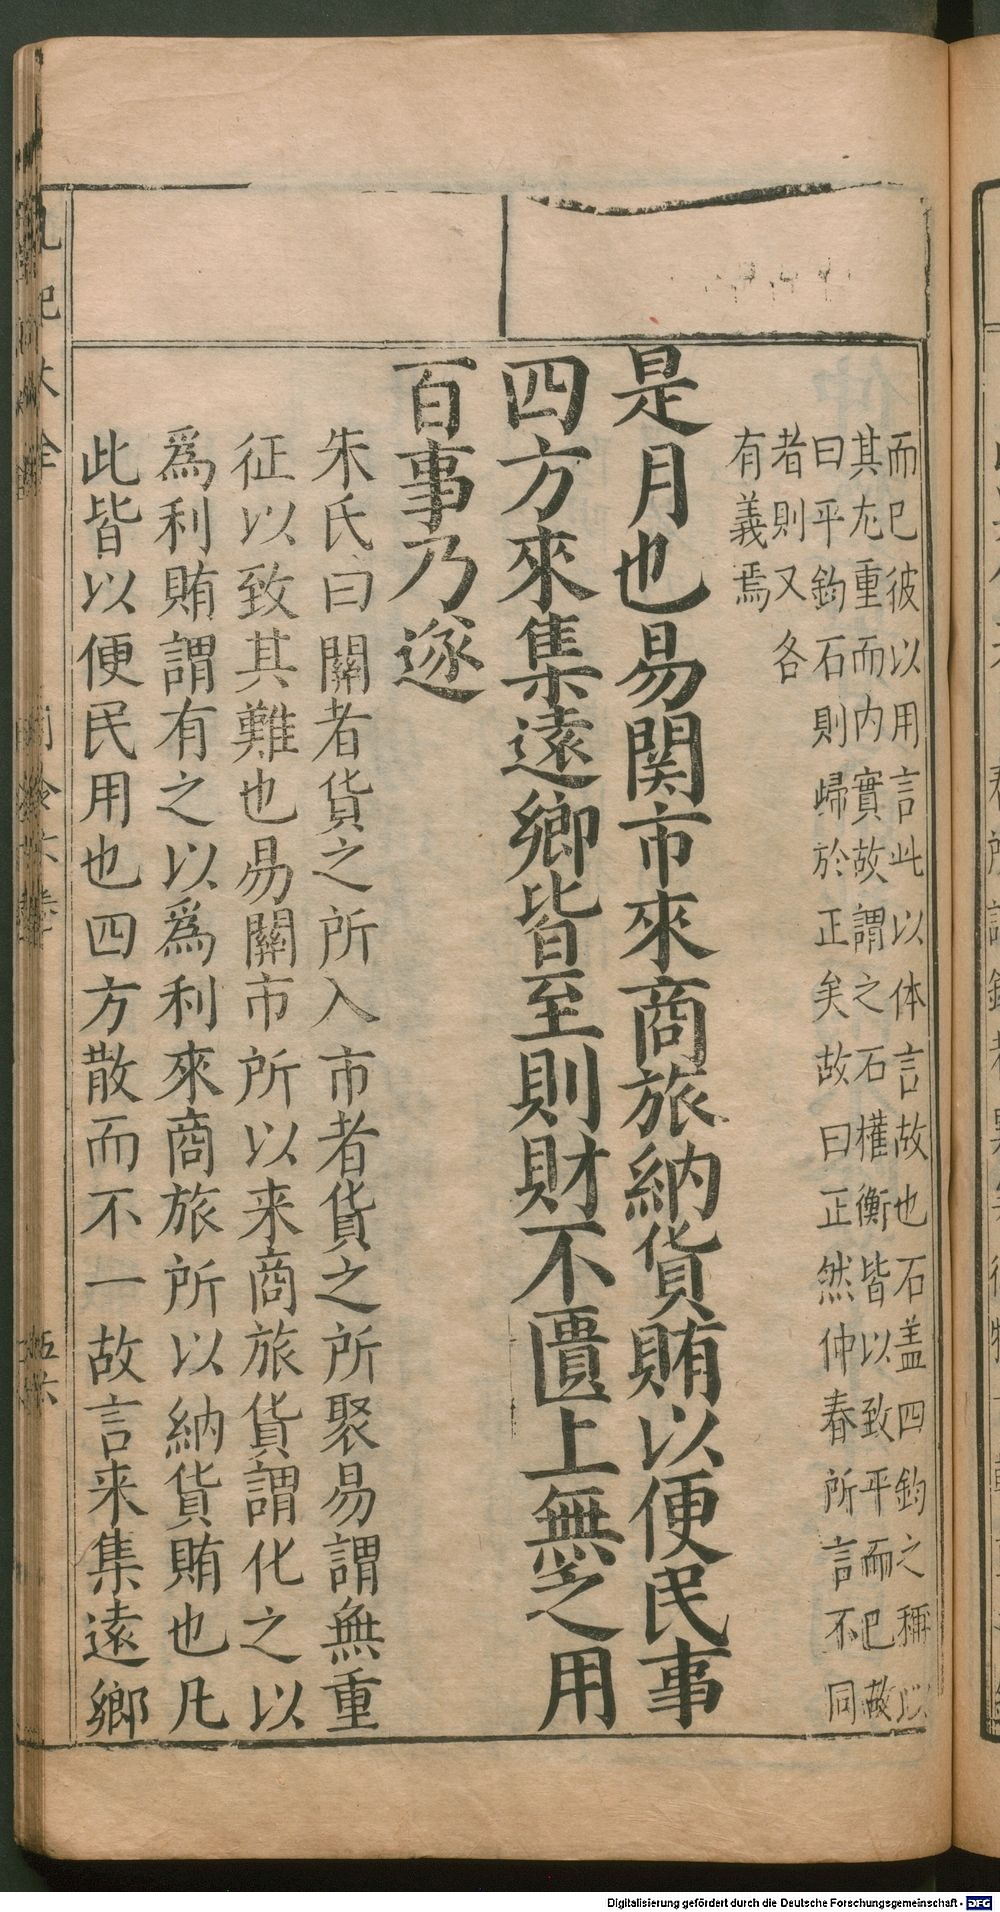 而已彼以用言此以体言故也石盖四鈞之稱以
其尤重而内實故謂之石權衡皆以致平而已故
曰平鈞石則歸於正矣故曰正然仲春所言不同
者則又各
有義焉
是月也易関市來商旅納貨賄以便民事
四方來集遠鄉皆至則財不匱上無乏用
百事乃遂
朱氏曰關者貨之所入市者貨之所聚易謂無重
征以致其難也易關市所以来商旅貨謂化之以
爲利賄謂有之以爲利來商旅所以納貨賄也凡
此皆以便民用也四方散而不一故言来集遠鄉
Digitalisierung gefördert durch die Deutsche Forschungsgemeinschaft - DFG